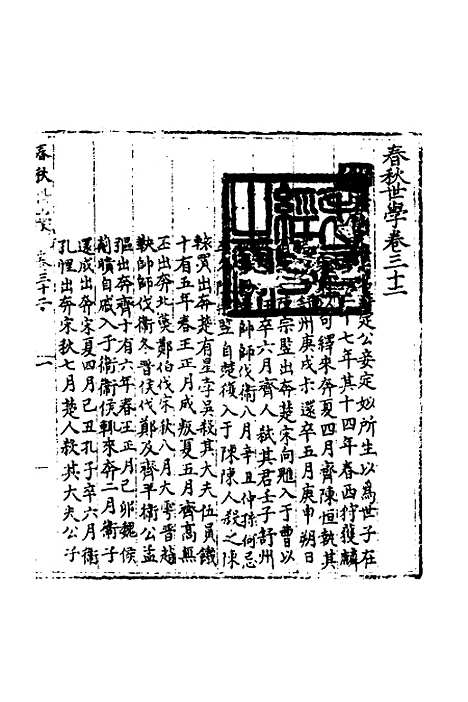 春秋世學卷三十二
定公妾定姒所生以爲世子在
十七年其十四年春西狩獲麟
句繹來奔夏四月齊陳恒執其
州庚戌卡還卒五月庚申朔日
宗竪出奔楚宋向魋入于曹以
卒六月齊人弒其君壬于舒州
帥師伐衛八月辛丑仲孫何忌
自楚復入于陳陳人殺之陳
轅買出奔楚有星孛吳殺其大夫伍員鐵
十有五年春王正月成叛夏五月齊高無
丕出奔北燕鄭伯伐宋秋八月大雩晋趙
鞅帥師伐衛冬晋侯伐鄭及齊平衛公孟
彄出奔齊十有六年春王正月己卯魏侯
蒯聵自戚入于衛衛侯輒來奔二月衛子
還成出奔宋夏四月己丑孔子卒六月衛
孔悝出奔宋秋七月楚人殺其大夫公子
春秋
卷三十二
一